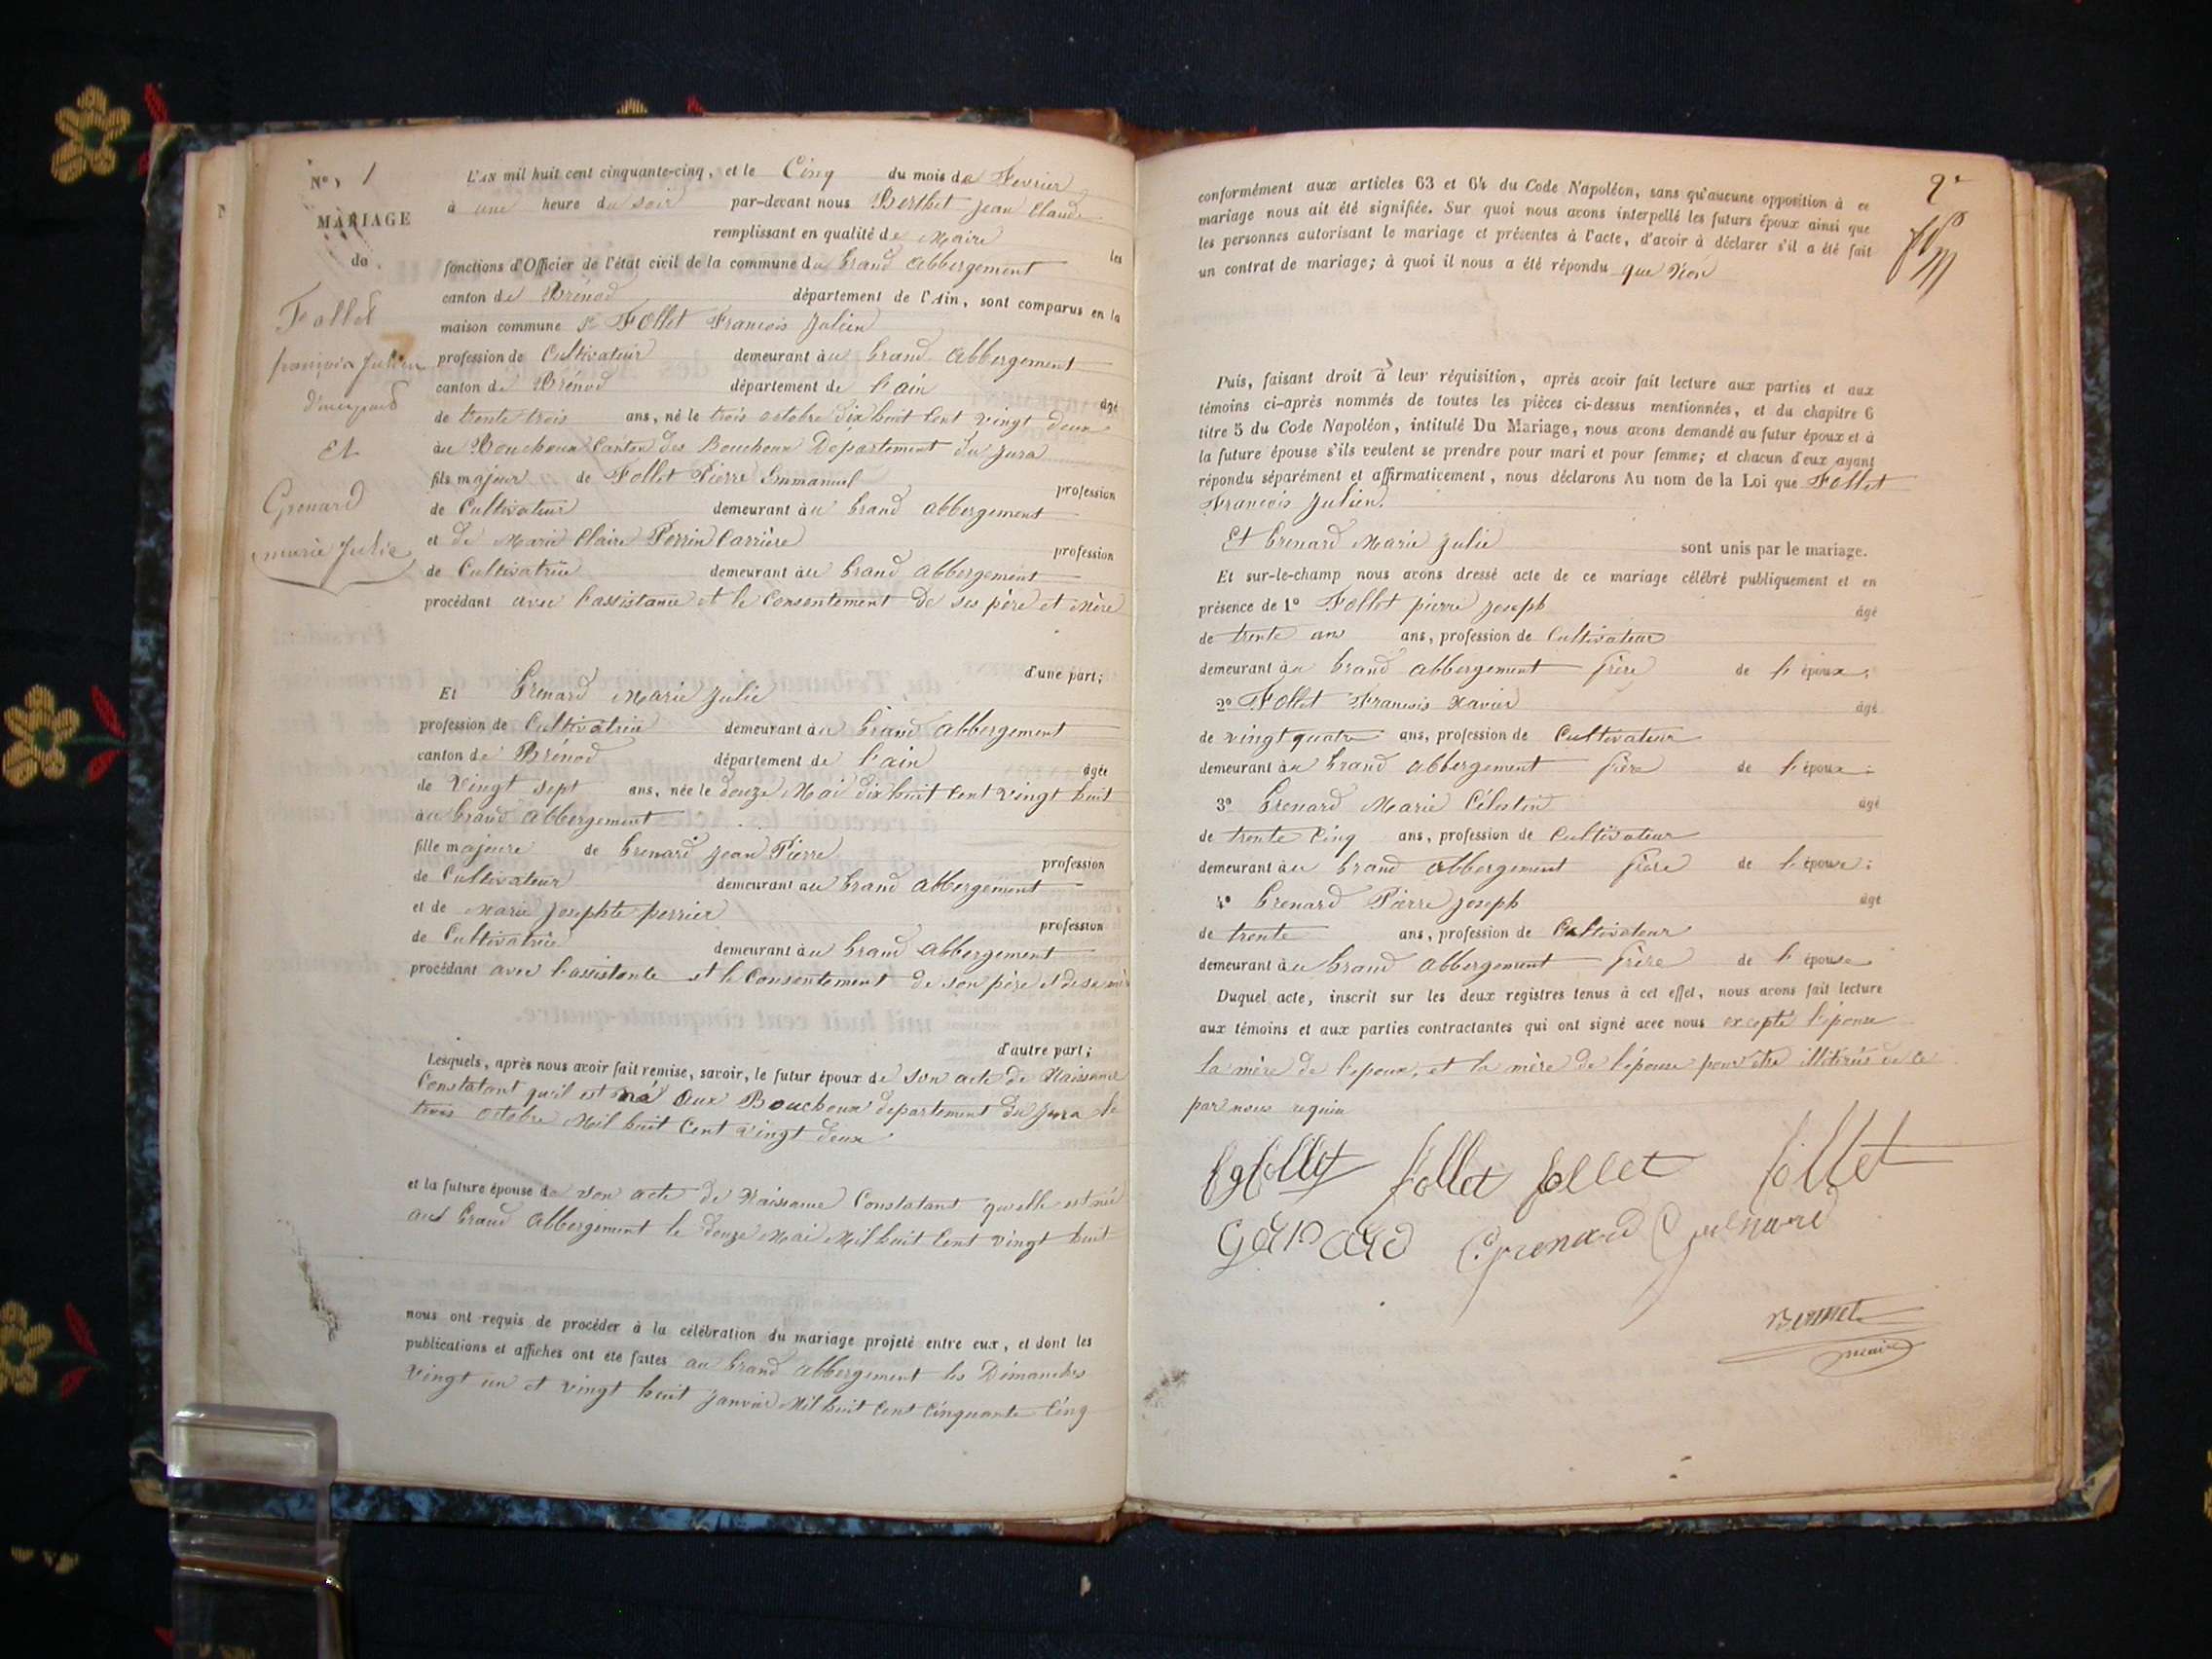 N° 1
MARIAGE
de
Follet
françois Julien
d'une part
Et
Grenard
marie Julie
L'AN mil huit cent cinquante-cinq, et le Cinq du mois de Fevrier
à une heure du soir par-devant nous Berthet jean Claude
remplissant en qualité de Maire les
fonctions d'Officier de l'état civil de la commune du Grand Abbergement
canton de Brénod département de l'Ain, sont comparus en la
maison commune Follet Francois Julien
profession de Cultivateur demeurant au Grand Abbergement
canton de Brénod département de l'ain âgé
de trente trois ans, né le trois octobre dix huit Cent vingt deux
au Bouchoux Canton des Bouchoux Departement du jura
fils majeur de Follet Pierre Emmanuel profession
de Cultivateur demeurant au Grand Abbergement
et de Marie Claire Perrin Carrière profession
de Cultivatrice demeurant au Grand Abbergement
procédant avec l'assistance et le Consentement de ses père et Mère
d'une part;
Et Grenard Marie Julie
profession de Cultivatrice demeurant au Grand Abbergement
canton de Brénod département de l'ain âgée
de Vingt sept ans, née le douze Mai dix huit Cent vingt huit
au Grand Abbergement
fille majeure de Grenard Jean Pierre profession
de Cultivateur demeurant au Grand Abbergement
et de Marie Josephte perrier profession
de Cultivatrice demeurant au Grand Abbergement
procédant avec l'assistante et le Consentement de son père et de sa mère
d'autre part;
Lesquels, après nous avoir fait remise, savoir, le futur époux de son acte de Naissance
Constatant qu'il est né aux Bouchoux departement du jura le
trois octobre Mil huit Cent vingt deux
et la future épouse de son acte de Naissance Constatant qu'elle est née
au Grand Abbergement le douze Mai Mil huit Cent vingt huit
nous ont requis de procéder à la célébration du mariage projeté entre eux, et dont les
publications et affiches ont été faites au Grand Abbergement les Dimanches
Vingt un et vingt huit janvier Mil huit Cent Cinquante Cinq
2e
conformément aux articles 63 et 64 du Code Napoléon, sans qu'aucune opposition à ce
mariage nous ait été signifiée. Sur quoi nous avons interpellé les futurs époux ainsi que
les personnes autorisant le mariage et présentes à l'acte, d'avoir à déclarer s'il a été fait
un contrat de mariage; à quoi il nous a été répondu que Non
Puis, faisant droit à leur réquisition, après avoir fait lecture aux parties et aux
témoins ci-après nommés de toutes les pièces ci-dessus mentionnées, et du chapitre 6
titre 5 du Code Napoléon, intitulé Du Mariage, nous avons demandé au futur époux et à
la future épouse s'ils veulent se prendre pour mari et pour femme; et chacun d'eux ayant
répondu séparément et affirmativement, nous déclarons Au nom de la Loi que Follet
Francois Julien.
Et Grenard Marie Julie sont unis par le mariage.
Et sur-le-champ nous avons dressé acte de ce mariage célébré publiquement et en
présence de 1° Follet pierre joseph âgé
de trente ans ans, profession de Cultivateur
demeurant au Grand Abbergement frère de l'époux;
2° Follet Francois Xavier âgé
de vingt quatre ans, profession de Cultivateur
demeurant au Grand Abbergement frère de l'époux;
3° Grenard Marie Célestin âgé
de trente Cinq ans, profession de Cultivateur
demeurant au Grand Abbergement frère de l'épouse;
4° Grenard Pierre joseph âgé
de trente ans, profession de Cultivateur
demeurant au Grand Abbergement frère de l'épouse
Duquel acte, inscrit sur les deux registres tenus à cet effet, nous avons fait lecture
aux témoins et aux parties contractantes qui ont signé avec nous excepté l'épouse
la mère de l'epoux, et la mère de l'épouse pour être illitérées de ce
par nous requis
follet follet follet follet
Grenard Grenard
Berthet
maire